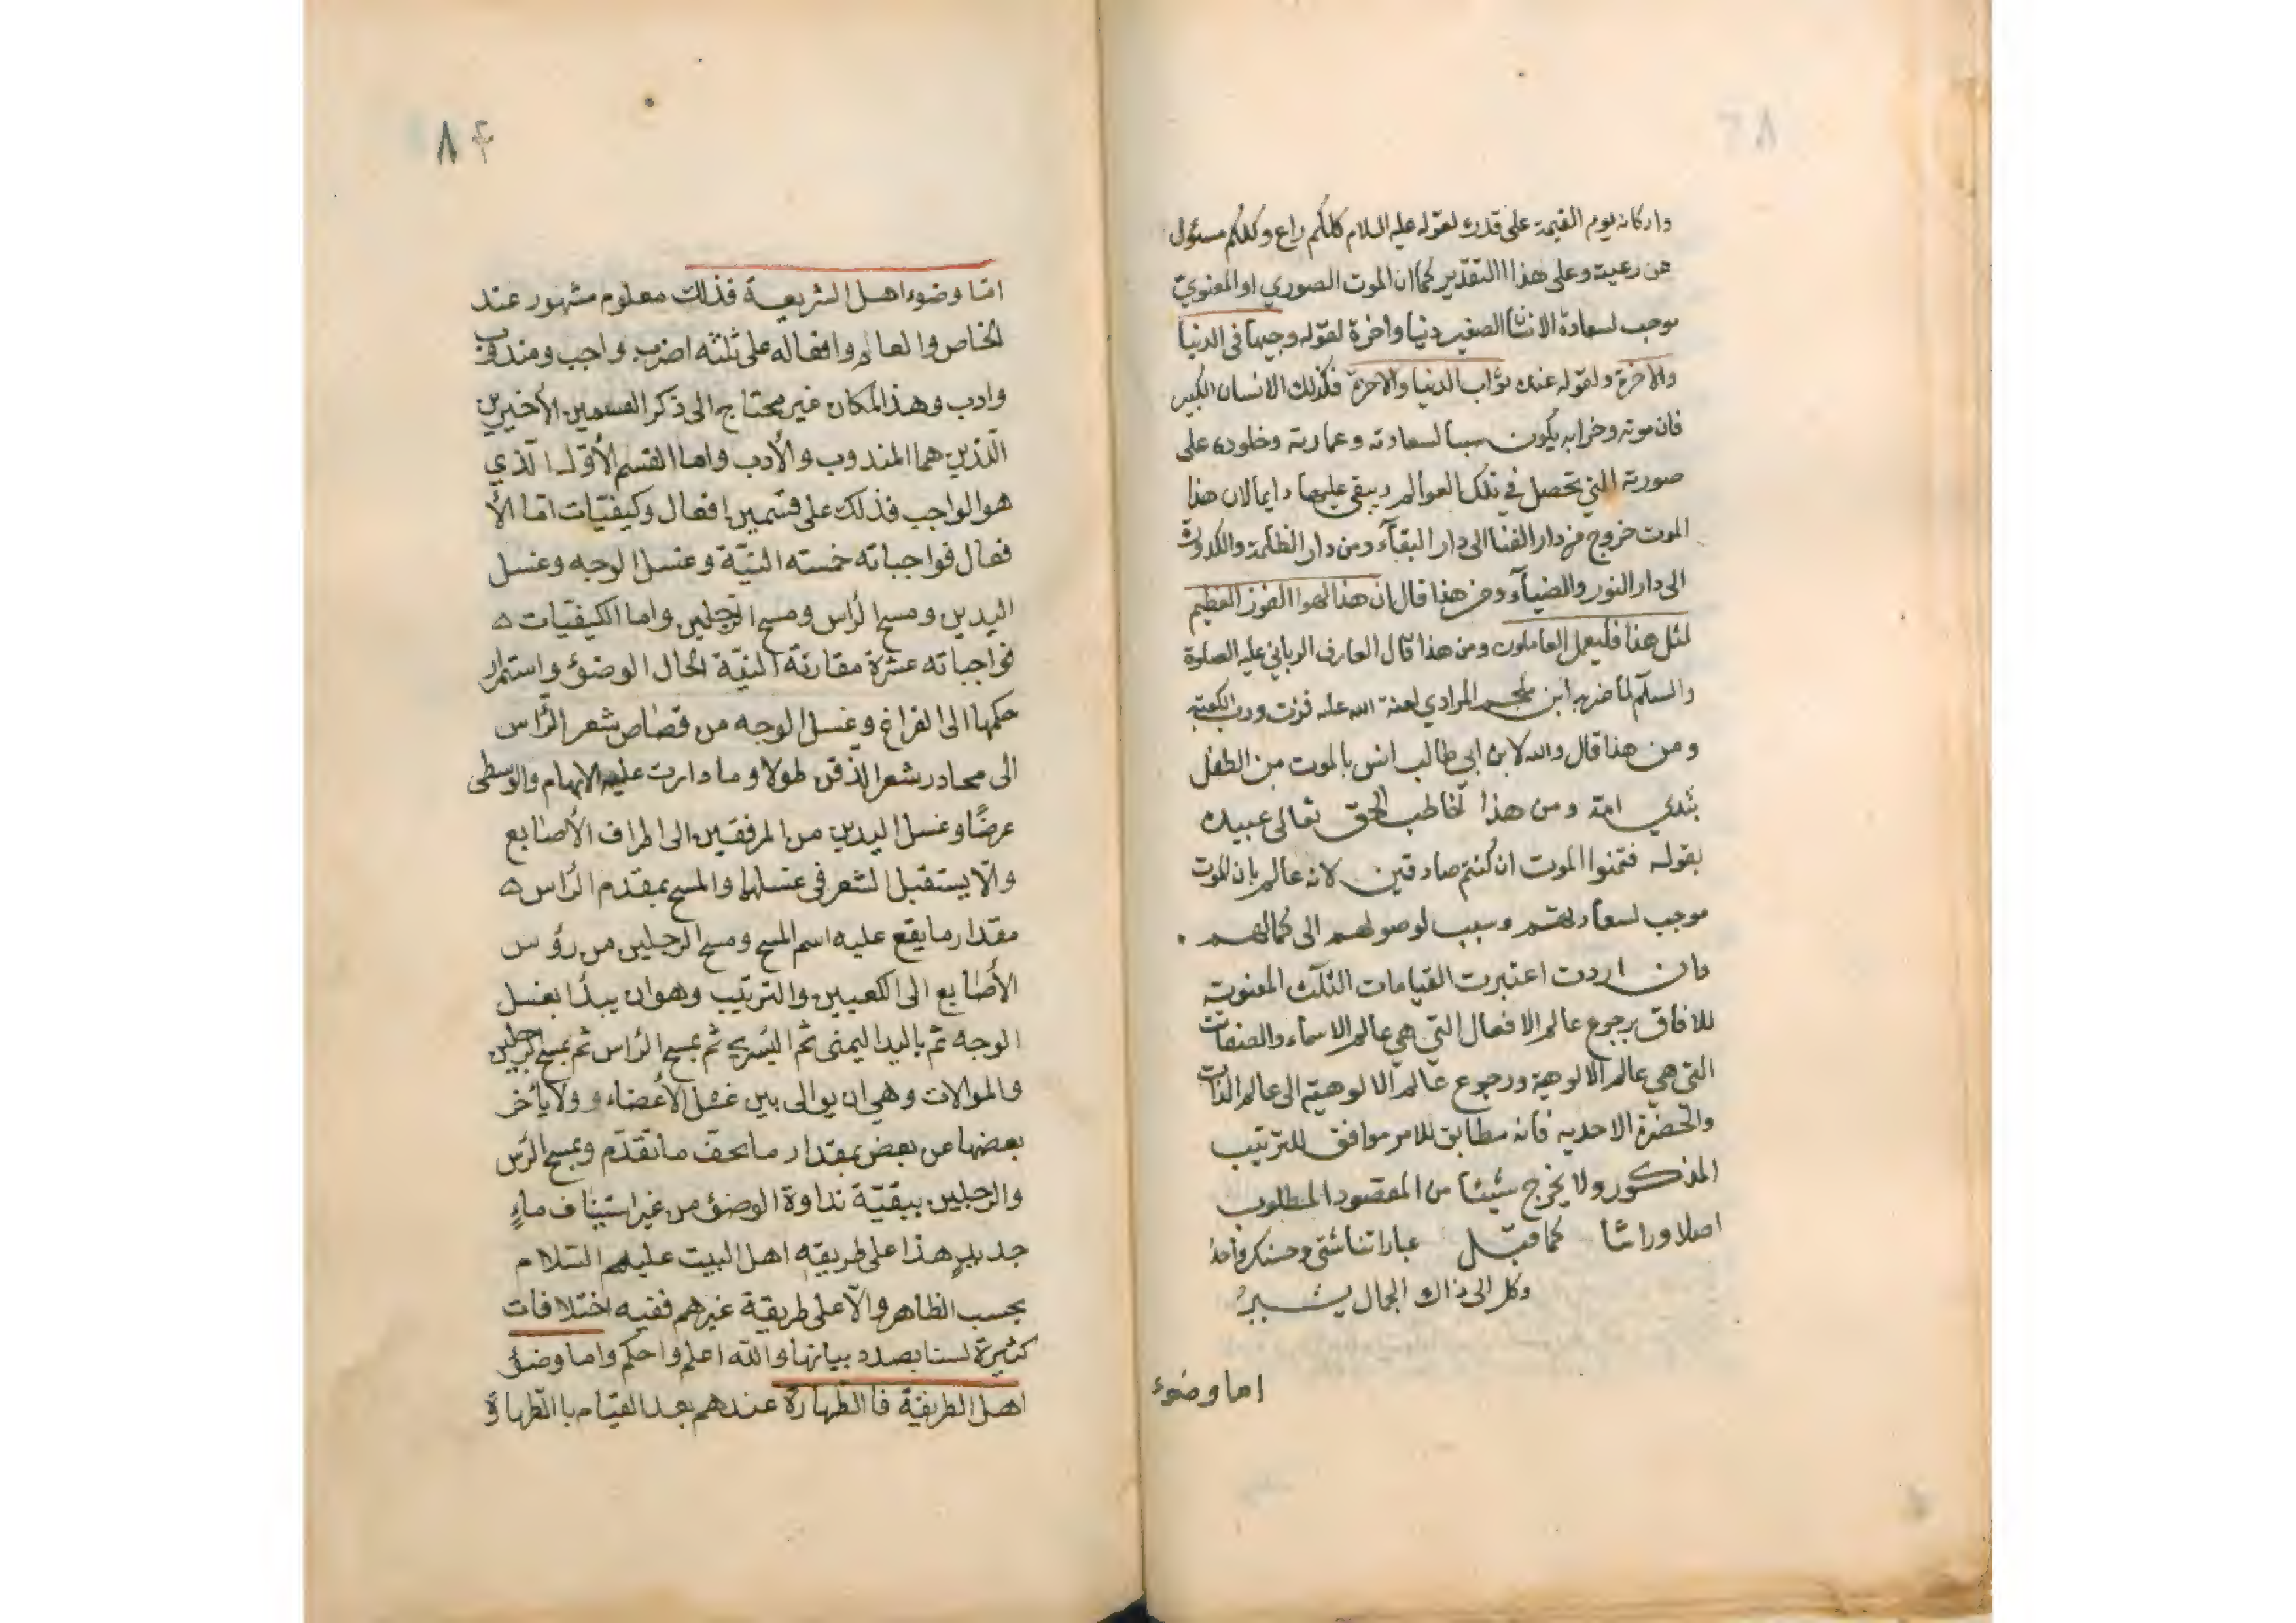 واركانه يوم القيمة على قدره لقوله عليه السلام كلكم راع وكلكم مسئول
عن رعيته وعلى هذا التقدير كما ان الموت الصوري او المعنويّ
موجب لسعادة الانسان الصغير دنيا واخرة لقوله وجيها فى الدنيا
والاخرة ولقوله عنده ثواب الدنيا والاخرة فكذلك الانسان الكبير
فان موته وخرابه يكون سببا لسعادته وعمارته وخلوده على
صورته التي تحصل في تلك العوالم ويبقى عليها دايما لان هذا
الموت خروج من دار الفنا الى دار البقآء ومن دار الظلمة والكدورة
الى دار النور والضيآء ومن هذا قال ان هذا لهو الفوز العظيم
لمثل هذا فليعمل العاملون ومن هذا قال العارف الرباني عليه الصلوة
والسلم لما ضربه ابن ملجم المرادي لعنة الله عليه فزت ورب الكعبة
ومن هذا قال والله لابن ابي طالب انس بالموت من الطفل
بثدي امه ومن هذا تخاطب الحق تعالى عبيده
بقوله فتمنوا الموت ان كنتم صادقين لانه عالم بان الموت
موجب لسعادتهم وسبب لوصولهم الى كمالهم .
وان اردت اعتبرت القيامات الثلث المعنوية
للافاق برجوع عالم الافعال التي هي عالم الاسماء والصفات
التى هي عالم الالوهية ورجوع عالم الالوهية الى عالم الذات
والحضرة الاحديه فانه مطابق للامر موافق للترتيب
المذكور ولا يخرج شيئا من المقصود المطلوب
اصلا وراسًا كما قيل عباراتنا شتى وحسنك واحدُ
وكل الى ذاك الجمال يشيرُ
اما وضوء
٨٤
امّا وضوء اهل الشريعة فذلك معلوم مشهور عند
الخاص والعام وافعاله على ثلثه اضرب واجب ومندوب
وادب وهذا المكان غير محتاج الى ذكر القسمين الأخيرين
الّذين هما المندوب والأدب واما القسم الأوّل الّذي
هو الواجب فذلك على قسمين افعال وكيفيّات امّا الأ
فعال فواجباته خمسته النيّة وغسل الوجه وغسل
اليدين ومسح الرّاس ومسح الرّجلين واما الكيفيّات ه
فواجباته عشرة مقارنة النيّة لحال الوضوء واستمرار
حكمها الى الفراغ وغسل الوجه من قصاص شعر الرّاس
الى محادر شعر الذقن طولا وما دارت عليه الابهام والوسطى
عرضًا وغسل اليدين من المرفقين الى اطراف الأصابع
والّا يستقبل الشعر فى غسلهما والمسح بمقدم الرّاس ه
مقدار ما يقع عليه اسم المسح ومسح الرجلين من رؤس
الأصابع الى الكعبين والترتيب وهو ان يبدأ بغسل
الوجه ثم باليد اليمنى ثم اليسرى ثم بمسح الرّاس ثم بمسح الرّجلين
والموالات وهي ان يوالى بين غسل الأعضاء و ولا يأخر
بعضها عن بعض بمقدار ما يحف ما تقدّم وبمسح الرّس
والرجلين ببقيّة نداوة الوضوء من غير استيناف ماءٍ
جديدٍ هذا على طريقه اهل البيت عليهم السّلام
بحسب الظاهر والّا على طريقة غيرهم ففيه اختلافات
كثيرة لسنا بصدد بيانها والله اعلم واحكم واما وضوء
اهل الطريقة فالطّهارة عندهم بعد القيام با الطّهارة